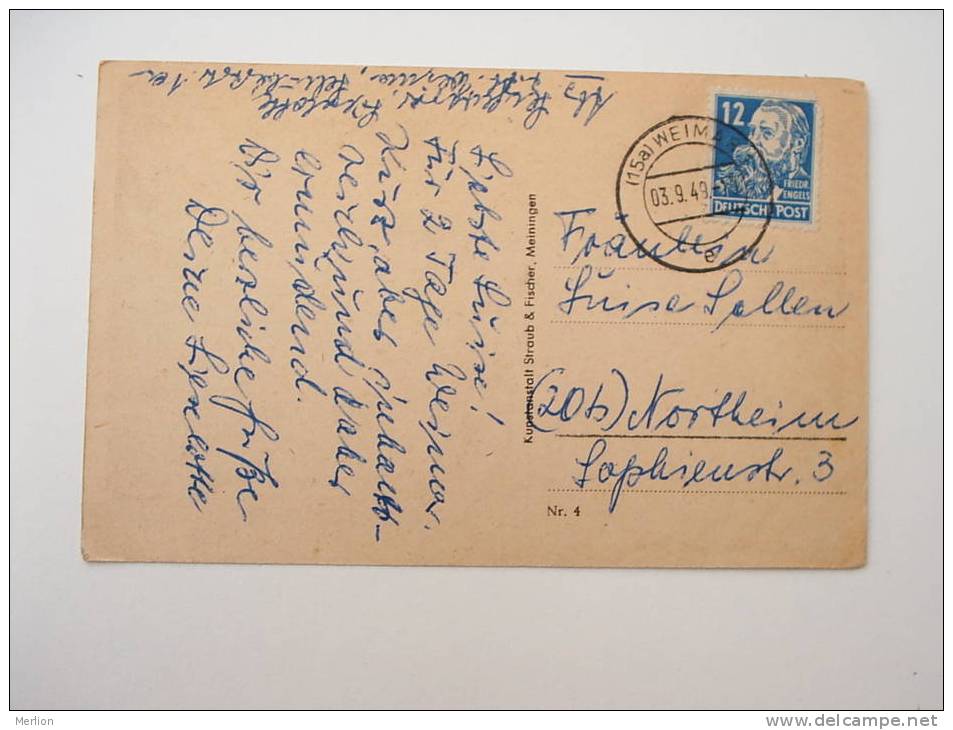 Liebste Luise!
Für 2 Tage Weimar.
Kurz, aber inhalts-
reich und daher
Dir herzliche Grüße
Deine Liselotte
Kunstanstalt Straub & Fischer, Meiningen
12
FRIEDR.
ENGELS
DEUTSCHE POST
(15a) WEIMAR
03.9.49.
e
Fräulein
Luise Sollen
(20b) Northeim
Sophienstr. 3
Nr. 4
Merlion
www.delcampe.net